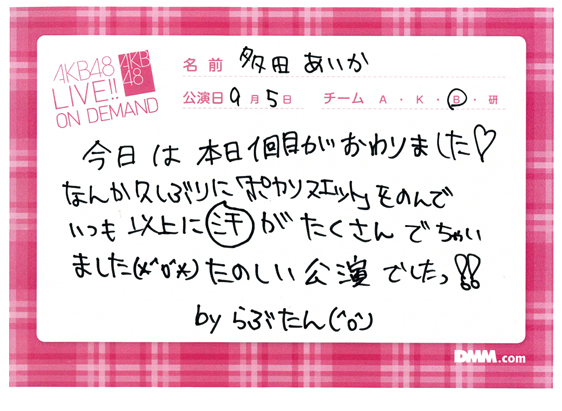 AKB48
LIVE!!
ON DEMAND
AKB
48
名前 多田あいか
公演日 9月5日 チーム A・K・B・研
今日は本日1回目がおわりました♡
なんか久しぶりに「ポカリスエット」をのんで
いつも以上に汗がたくさんでちゃい
ました(*^o^*)たのしい公演でしたっ!!
by らぶたん(^o^)
DMM.com